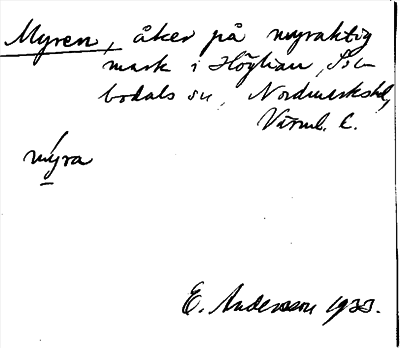 Myren, åker på myraktig
mark i Höglian, Sil-
bodals sn, Nordmarkshd,
Värml. l.
myra
E. Andersson 1933.